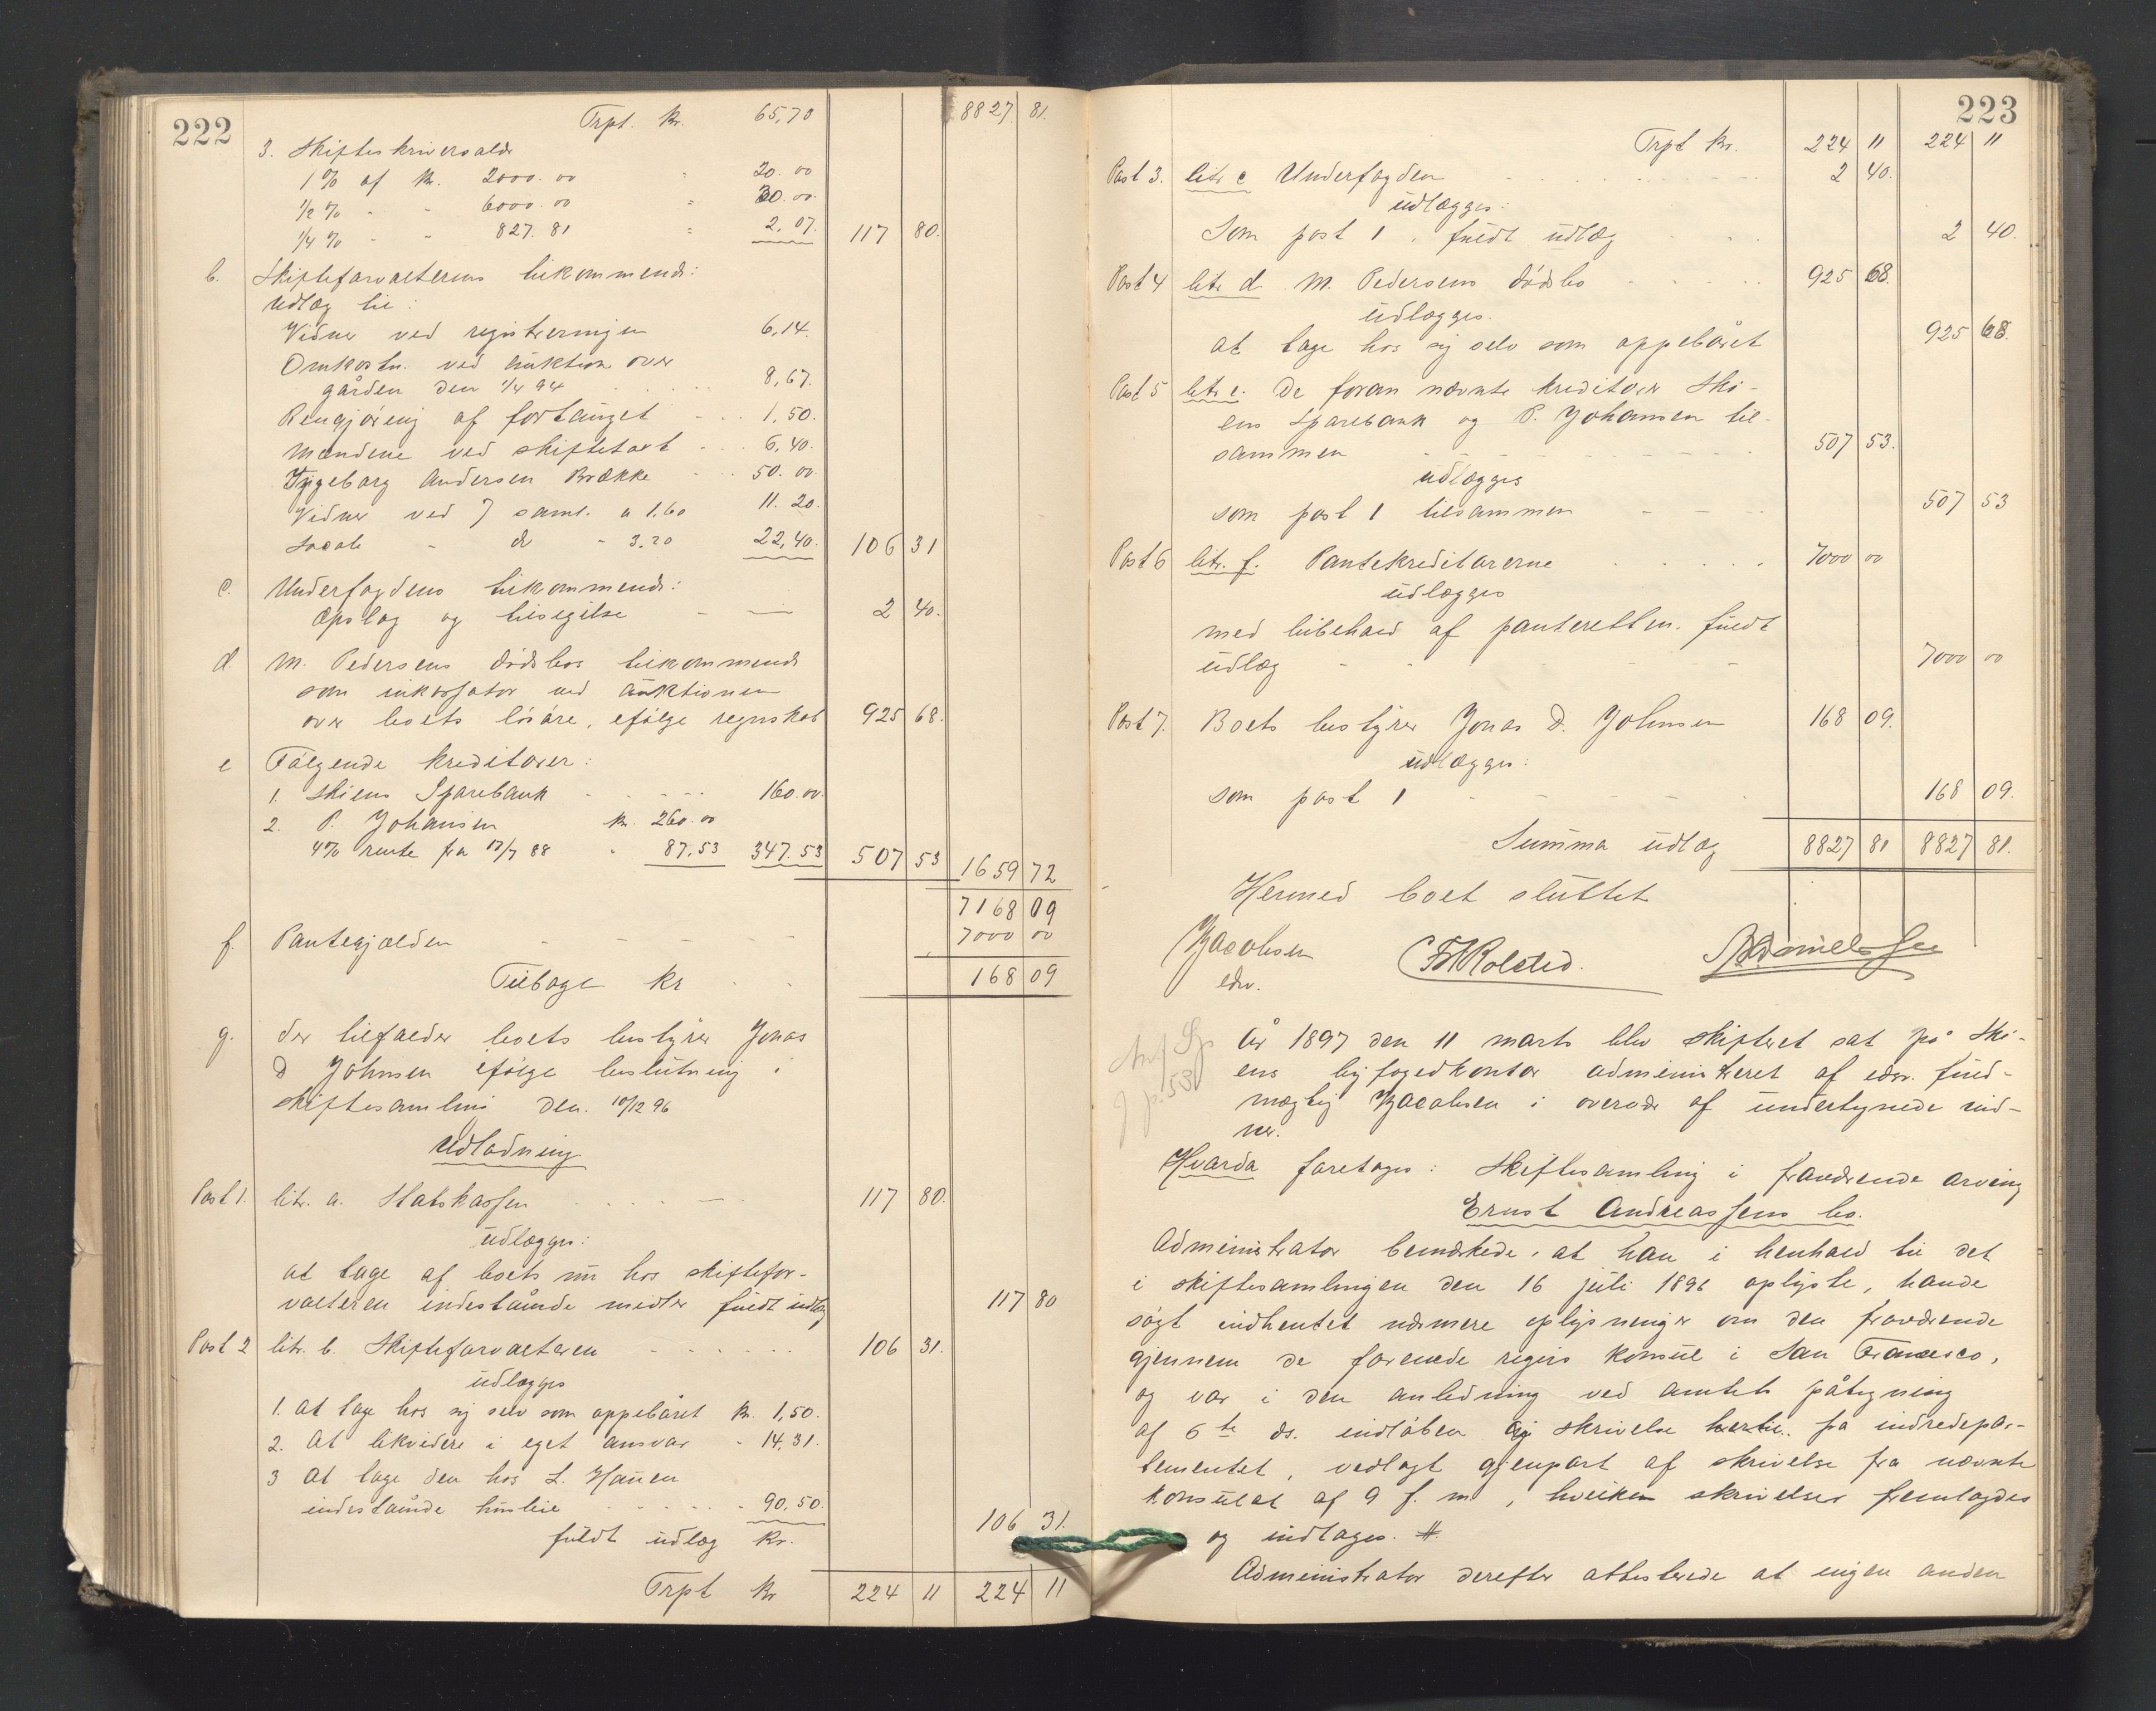 222
Trpt. Kr. 65,70 8827 81.
3. Skifteskriversalær
1 % af Kr. 2000.00 " 20.00
1/2 % - - 6000.00 " 30.00
1/4 % - - 827.81 " 2,07. 117 80.
b. Skifteforvalterens tilkommende:
Udlæg til:
Vidner ved registreringen 6,14.
Omkostn. ved auktion over
gården den 1/4 94 8,67.
Rengjøring af fortauget 1,50.
Mændene ved skiftetaxt 6,40.
Ingeborg Andersen Brække 50.00
Vidner ved 7 saml. a 1.60 11.20
Locale - do - 3.20 22,40. 106 31
c. Underfogdens tilkommende:
Opslag og tilsigelse 2 40.
d. M. Pedersens dødsbos tilkommende
som inkassator ved auktionen
over boets løsøre, ifølge regnskab 925 68.
e Følgende kreditorer:
1. Skiens Sparebank 160.00
2. P. Johansen Kr. 260.00
4% rente fra 17/7 88 " 87,53 347.53 507 53 1659 72
7168 09
f. Pantegjælden 7000 00
Tilbage Kr 168 09
g. der tilfalder boets bestyrer Jonas
D Johnsen ifølge beslutning i
skiftesamling den 10/12 96
Udlodning
Post 1. litr. a. Statskassen 117 80.
udlægges:
at tage af boets nu hos skiftefor-
valteren indestående midler fuldt udlæg 117 80
Post 2 litr. b. Skifteforvalteren 106 31.
udlægges
1. at tage hos sig selv som oppebåret Kr. 1,50.
2. At likvidere i eget ansvar - 14,31.
3 At tage den hos L. Hansen
indestående husleie - 90,50.
fuldt udlæg Kr. 106 31.
Trpt Kr 224 11 224 11
223
Trpt Kr. 224 11 224 11
Post 3. litr c Underfogden 2 40.
udlægges:
Som post 1, fuldt udlæg 2 40.
Post 4 litr d M. Pedersens dødsbo 925 68.
udlægges.
at tage hos sig selv som oppebåret 925 68.
Post 5 litr e. De foran nævnte kreditorer Ski-
ens Sparebank og P. Johansen til-
sammen 507 53.
udlægges
som post 1 tilsammen 507 53
Post 6 litr. f. Pantekreditorerne 7000 00
udlægges
med bibehold af panteretten. fuldt
udlæg 7000 00
Post 7. Boets bestyrer Jonas D. Johnsen 168 09.
udlægges:
som post 1 168 09.
Summa udlæg 8827 81 8827 81.
Hermed boet sluttet
Jacobsen
edsv.
År 1897 den 11 marts blev skifteret sat på Ski-
ens byfogedkontor administreret af edsv. fuld-
mægtig Jacobsen i overvær af undertegnede vid-
ner.
Hvorda foretoges: Skiftesamling i fraværende arving
Ernst Andreassens bo.
Administrator bemærkede, at han i henhold til det
i skiftesamlingen den 16 juli 1896 oplyste, havde
søgt indhentet nærmere oplysninger om den fraværende
gjennem de forenede rigers konsul i San Francisco,
og var i den anledning ved amtets påtegning
af 6te ds. indløben skrivelse hertil fra indredepar-
tementet, vedlagt gjenpart af skrivelse fra nævnte
konsulat af 9 f. m., hvilken skrivelser fremlagdes
og indtages. #
Administrator derefter attesterede at ingen anden